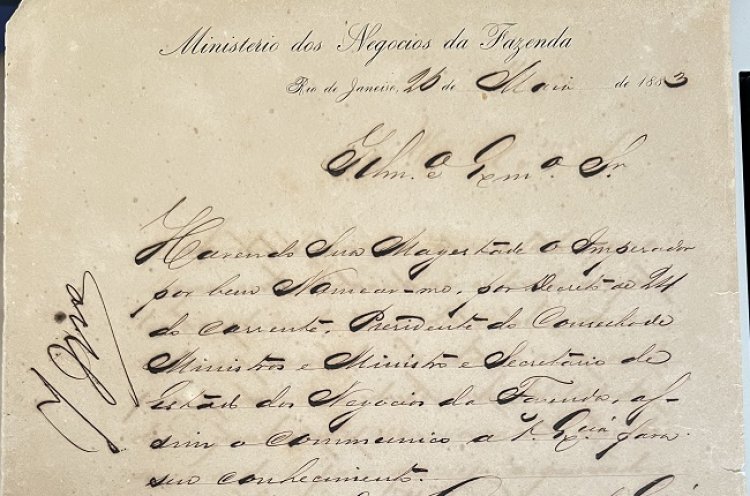 Ministerio dos Negocios da Fazenda
Rio de Janeiro, 26 de Maio de 1883
Illm.º e Exm.º Sr.
Havendo Sua Magestade o Imperador
por bem Nomear-me, por Decreto de 24
do corrente, Presidente do Conselho de
Ministros e Ministro e Secretario de
Estado dos Negocios da Fazenda, as-
sim o communico a V. Exciá para
seu conhecimento.